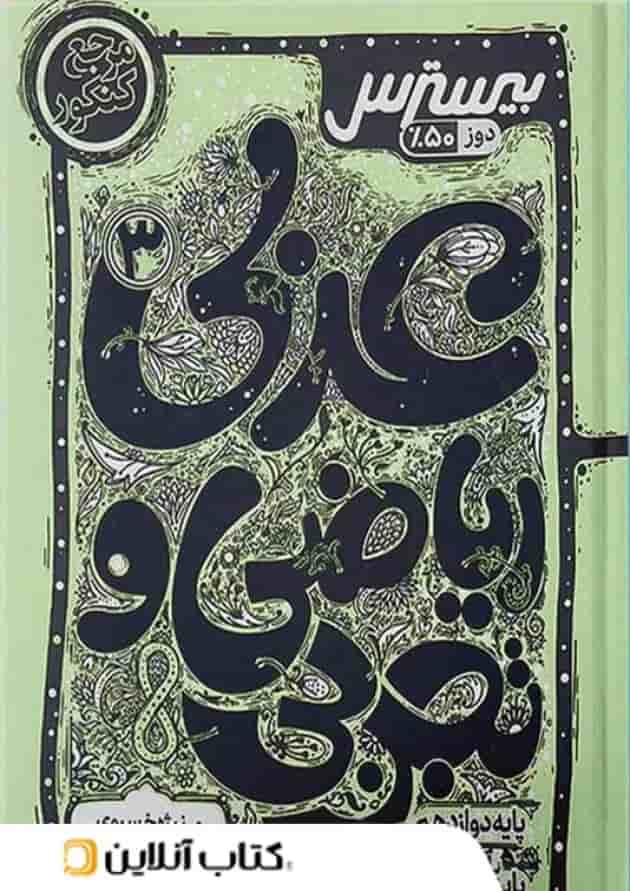 مرجع
کنکور
بیسترس
دوز ۵۰٪
عربی ۳
ریاضی و
تجربی
پایه دوازدهم
منیژه خسروی
کتاب آنلاین